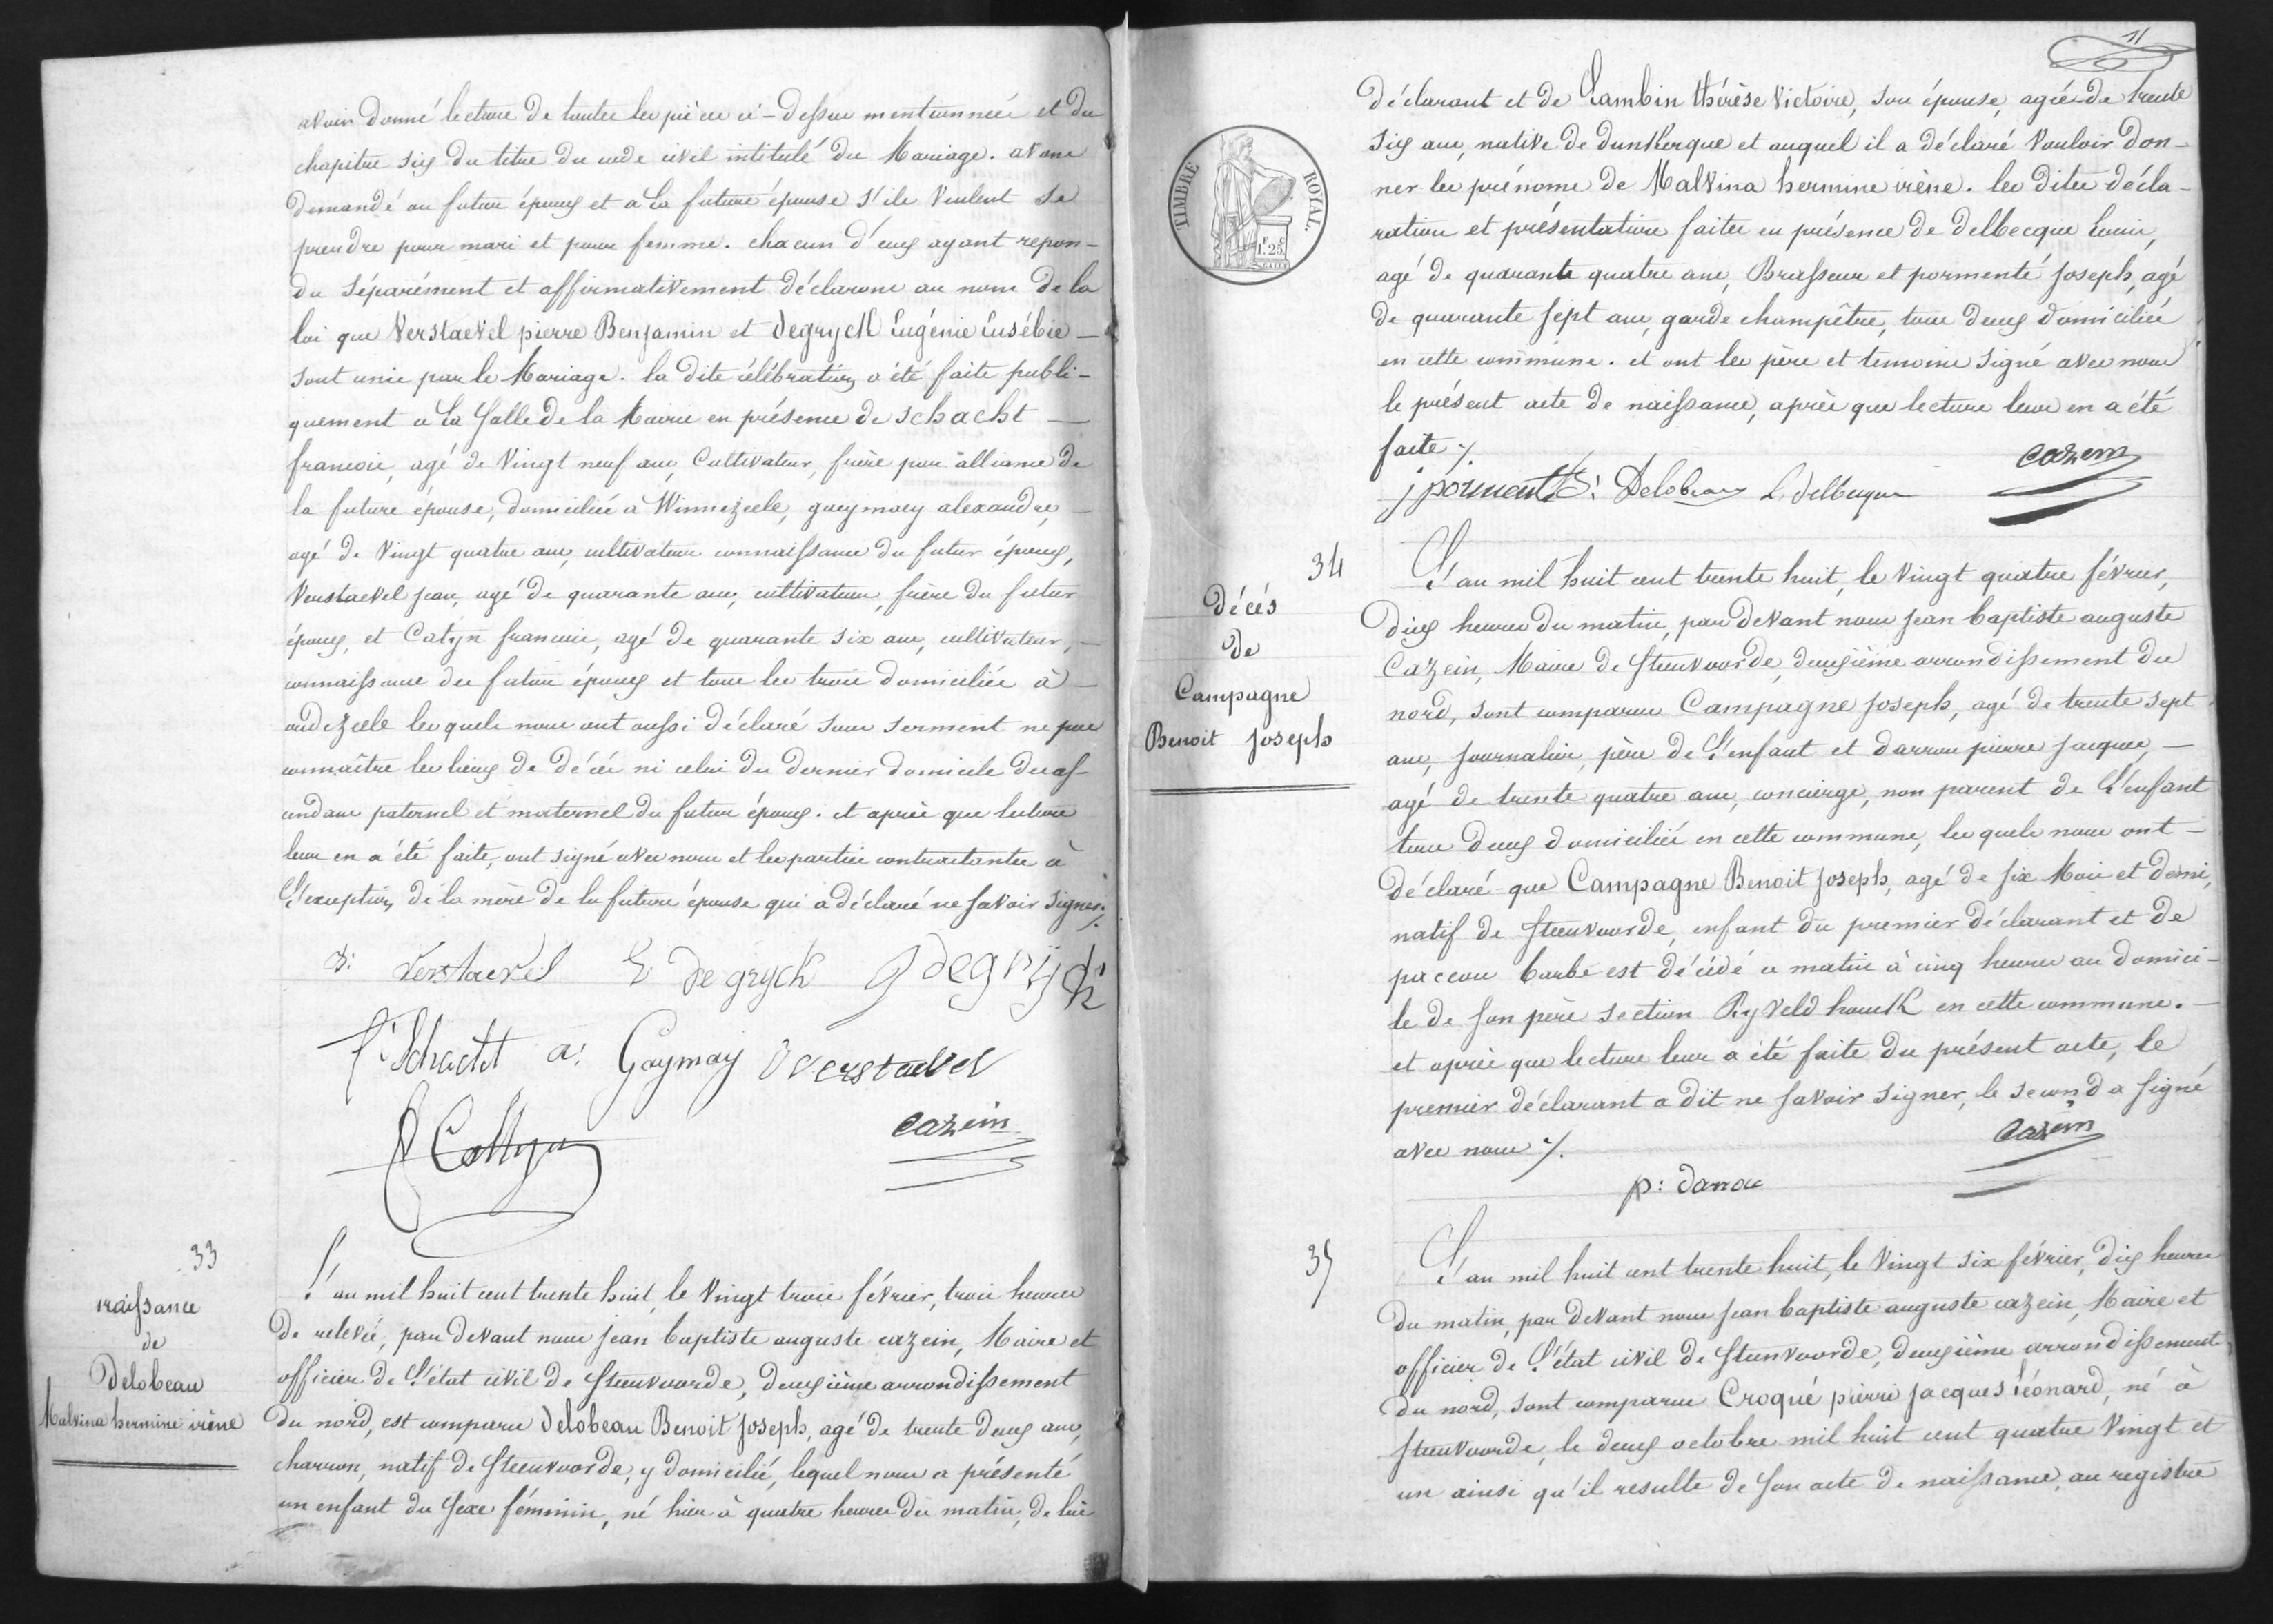 avoir donné lecture de toutes les pièces ci-dessus mentionnées et du
chapitre six du titre du code civil intitulé du Mariage. avons
demandé au futur époux et à la future épouse s'ils veulent se
prendre pour mari et pour femme. chacun d'eux ayant repon-
du séparément et affirmativement déclarons au nom de la
loi que Verstaevel pierre Benjamin et Degryck Eugénie Eusébie —
sont unis par le Mariage. la dite célébration a été faite publi-
quement a la salle de la Mairie en présence de Schacht —
francois, agé de vingt neuf ans, Cultivateur, frère par alliance de
la future épouse, domicilié à Winnezeele, gaeymaey alexandre, —
agé de vingt quatre ans, cultivateur connaissance du futur époux,
Verstaevel jean, agé de quarante ans, cultivateur, frère du futur
époux, et Catyn francois, agé de quarante six ans, cultivateur, —
connaissance des futurs époux et tous les trois domiciliés à —
oudezeele lesquels nous ont aussi déclaré sous serment ne pas
connaître les lieux de décès ni celui du dernier domicile des as-
cendans paternel et maternel du futur époux. et après que lecture
leur en a été faite, ont signé avec nous et les parties contractantes à
l'exception de la mère de la future épouse qui a déclaré ne savoir signer ./.
Verstaevel E Degryck J Degryck
f: Schacht a: Gaymay J Verstaevel
f Cattyn Cazein
33
naissance
de
Delobeau
Malvina hermine irène
L'an mil huit cent trente huit, le vingt trois février, trois heures
de relevée, par devant nous jean baptiste auguste cazein, Maire et
officier de l'état civil de Steenvoorde, deuxième arrondissement
du nord, est comparu Delobeau Benoit Joseph, agé de trente deux ans,
charron, natif de Steenvoorde, y domicilié, lequel nous a présenté
un enfant du sexe féminin, né hier à quatre heures du matin, de lui
11
TIMBRE ROYAL.
F. C
1.25
déclarant et de Lambin thérèse Victoire, son épouse, agée de trente
six ans, native de dunkerque et auquel il a déclaré vouloir don-
ner les prénoms de Malvina hermine irène. les dites décla-
rations et présentations faites en présence de delbecque Louis,
agé de quarante quatre ans, Brasseur et pormenté joseph, agé
de quarante sept ans, garde champêtre, tous deux domiciliés
en cette commune. et ont les père et temoins signé avec nous
le présent acte de naissance, après que lecture leur en a été
faite ./.
Cazein
j pormenté: B: Delobeau L. delbecque
34
Décés
de
Campagne
Benoit Joseph
L'an mil huit cent trente huit, le vingt quatre février,
dix heures du matin, par devant nous jean baptiste auguste
Cazein, Maire de Steenvoorde, deuxième arrondissement du
nord, sont comparus Campagne Joseph, agé de trente sept
ans, journalier, père de l'enfant et darrou pierre jacques, —
agé de trente quatre ans, concierge, non parent de l'enfant
tous deux domiciliés en cette commune, lesquels nous ont —
déclaré que Campagne Benoit Joseph, agé de six Mois et demi,
natif de Steenvoorde, enfant du premier déclarant et de
paccou barbe est décédé ce matin à cinq heures au domici-
le de son père section Ryveld houck en cette commune. —
et après que lecture leur a été faite du présent acte, le
premier déclarant a dit ne savoir signer, le second a signé
avec nous ./.
Cazein
p: darrou
35
L'an mil huit cent trente huit, le vingt six février, dix heures
du matin, par devant nous jean baptiste auguste cazein, Maire et
officier de l'état civil de Steenvoorde, deuxième arrondissement
du nord, sont comparus Croqué pierre jacques Léonard, né à
Steenvoorde, le deux octobre mil huit cent quatre vingt et
un ainsi qu'il resulte de son acte de naissance, au registre